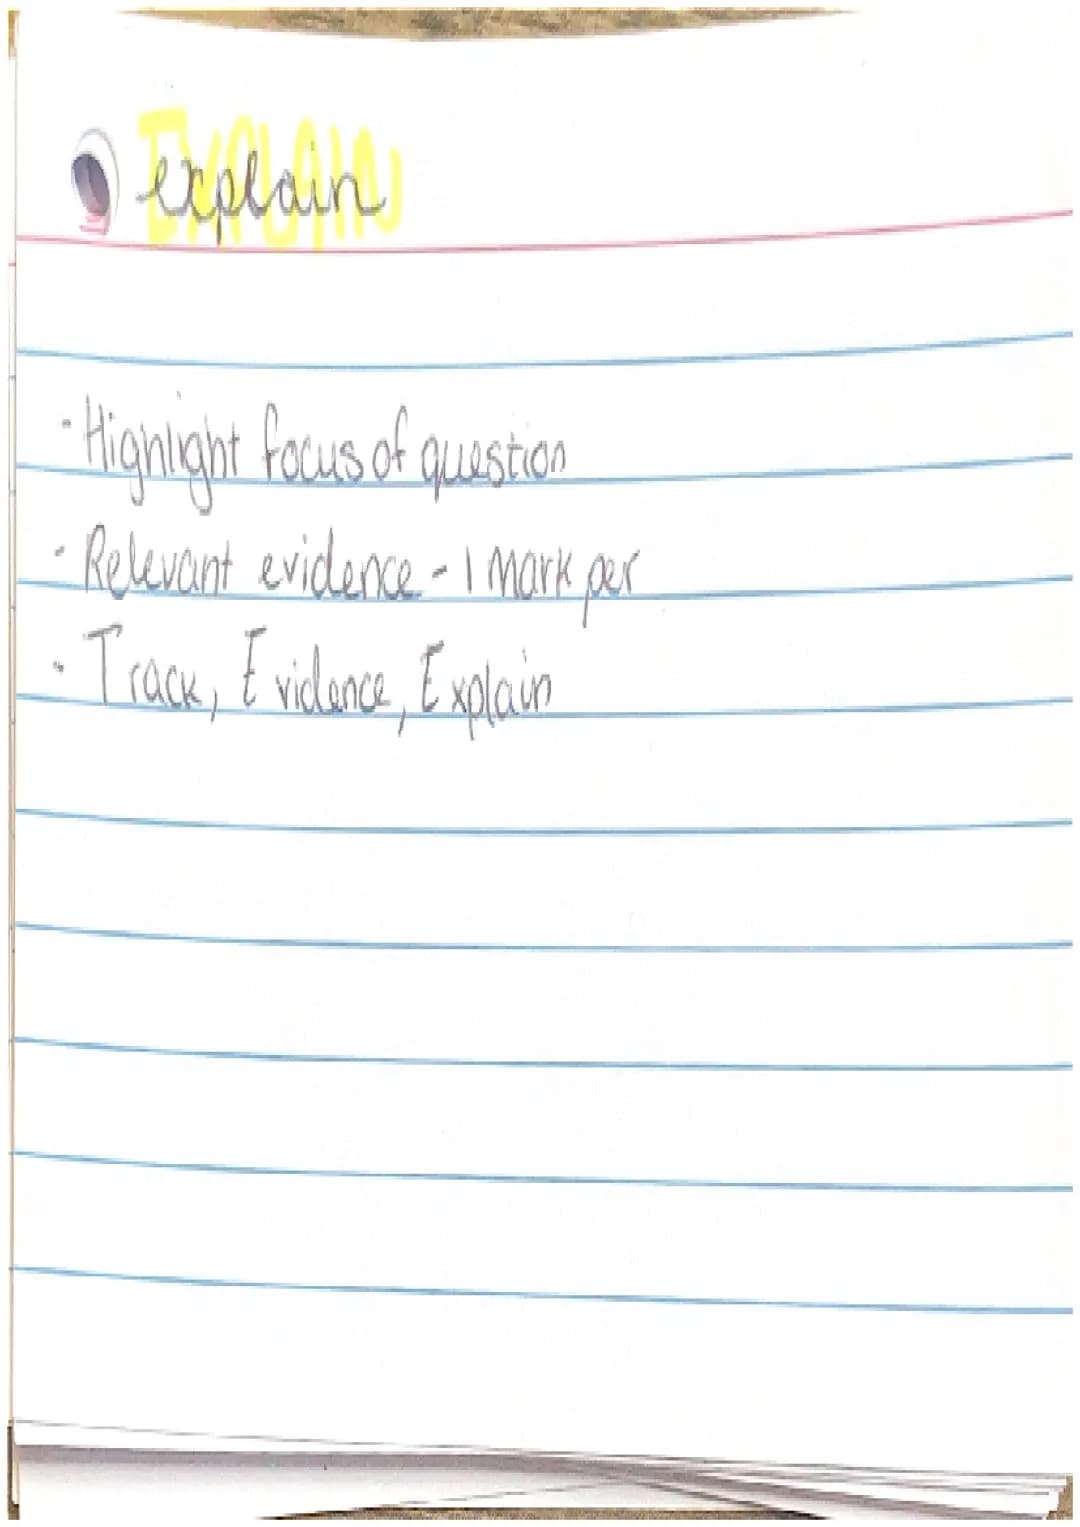 EXPLAIN
explain
- Highlight focus of question
- Relevant evidence - 1 mark per
- Track, Evidence, Explain